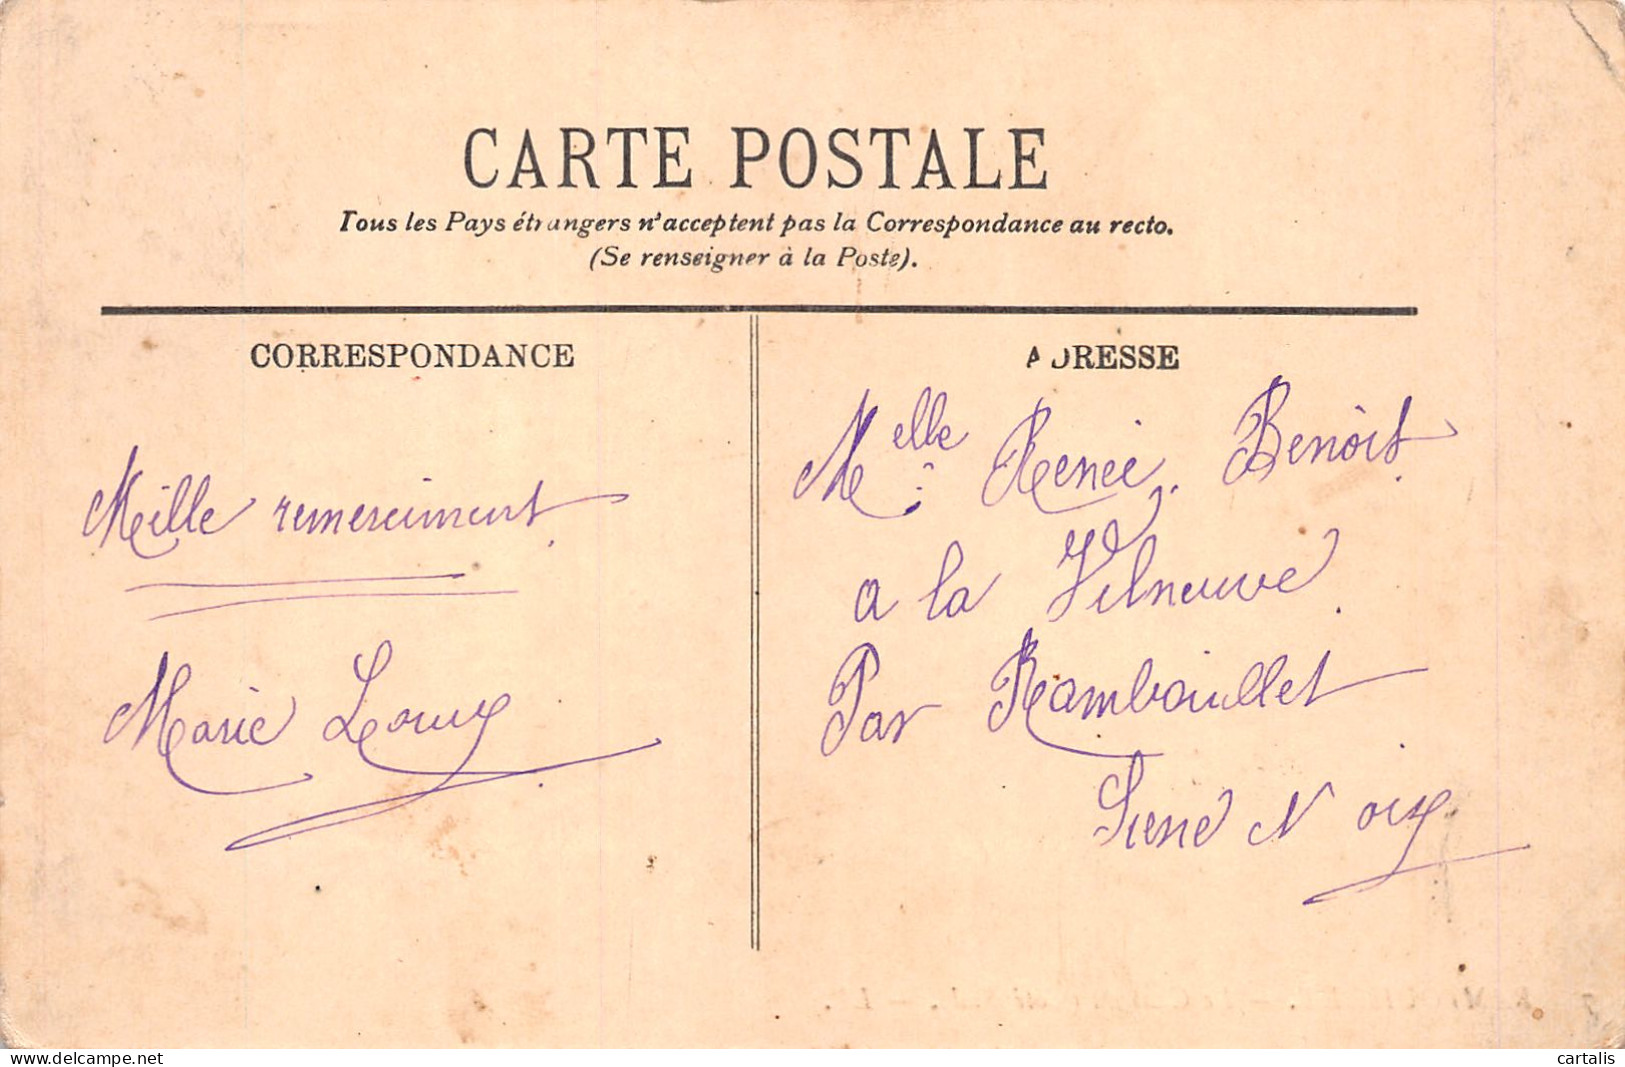 CARTE POSTALE
Tous les Pays étrangers n'acceptent pas la Correspondance au recto.
(Se renseigner à la Poste).
CORRESPONDANCE
Mille remerciment.
Marie
ADRESSE
Melle Renée Benoit
a la Vilneuve
Par Rambouillet
Siene
delcampe.net
cartalis